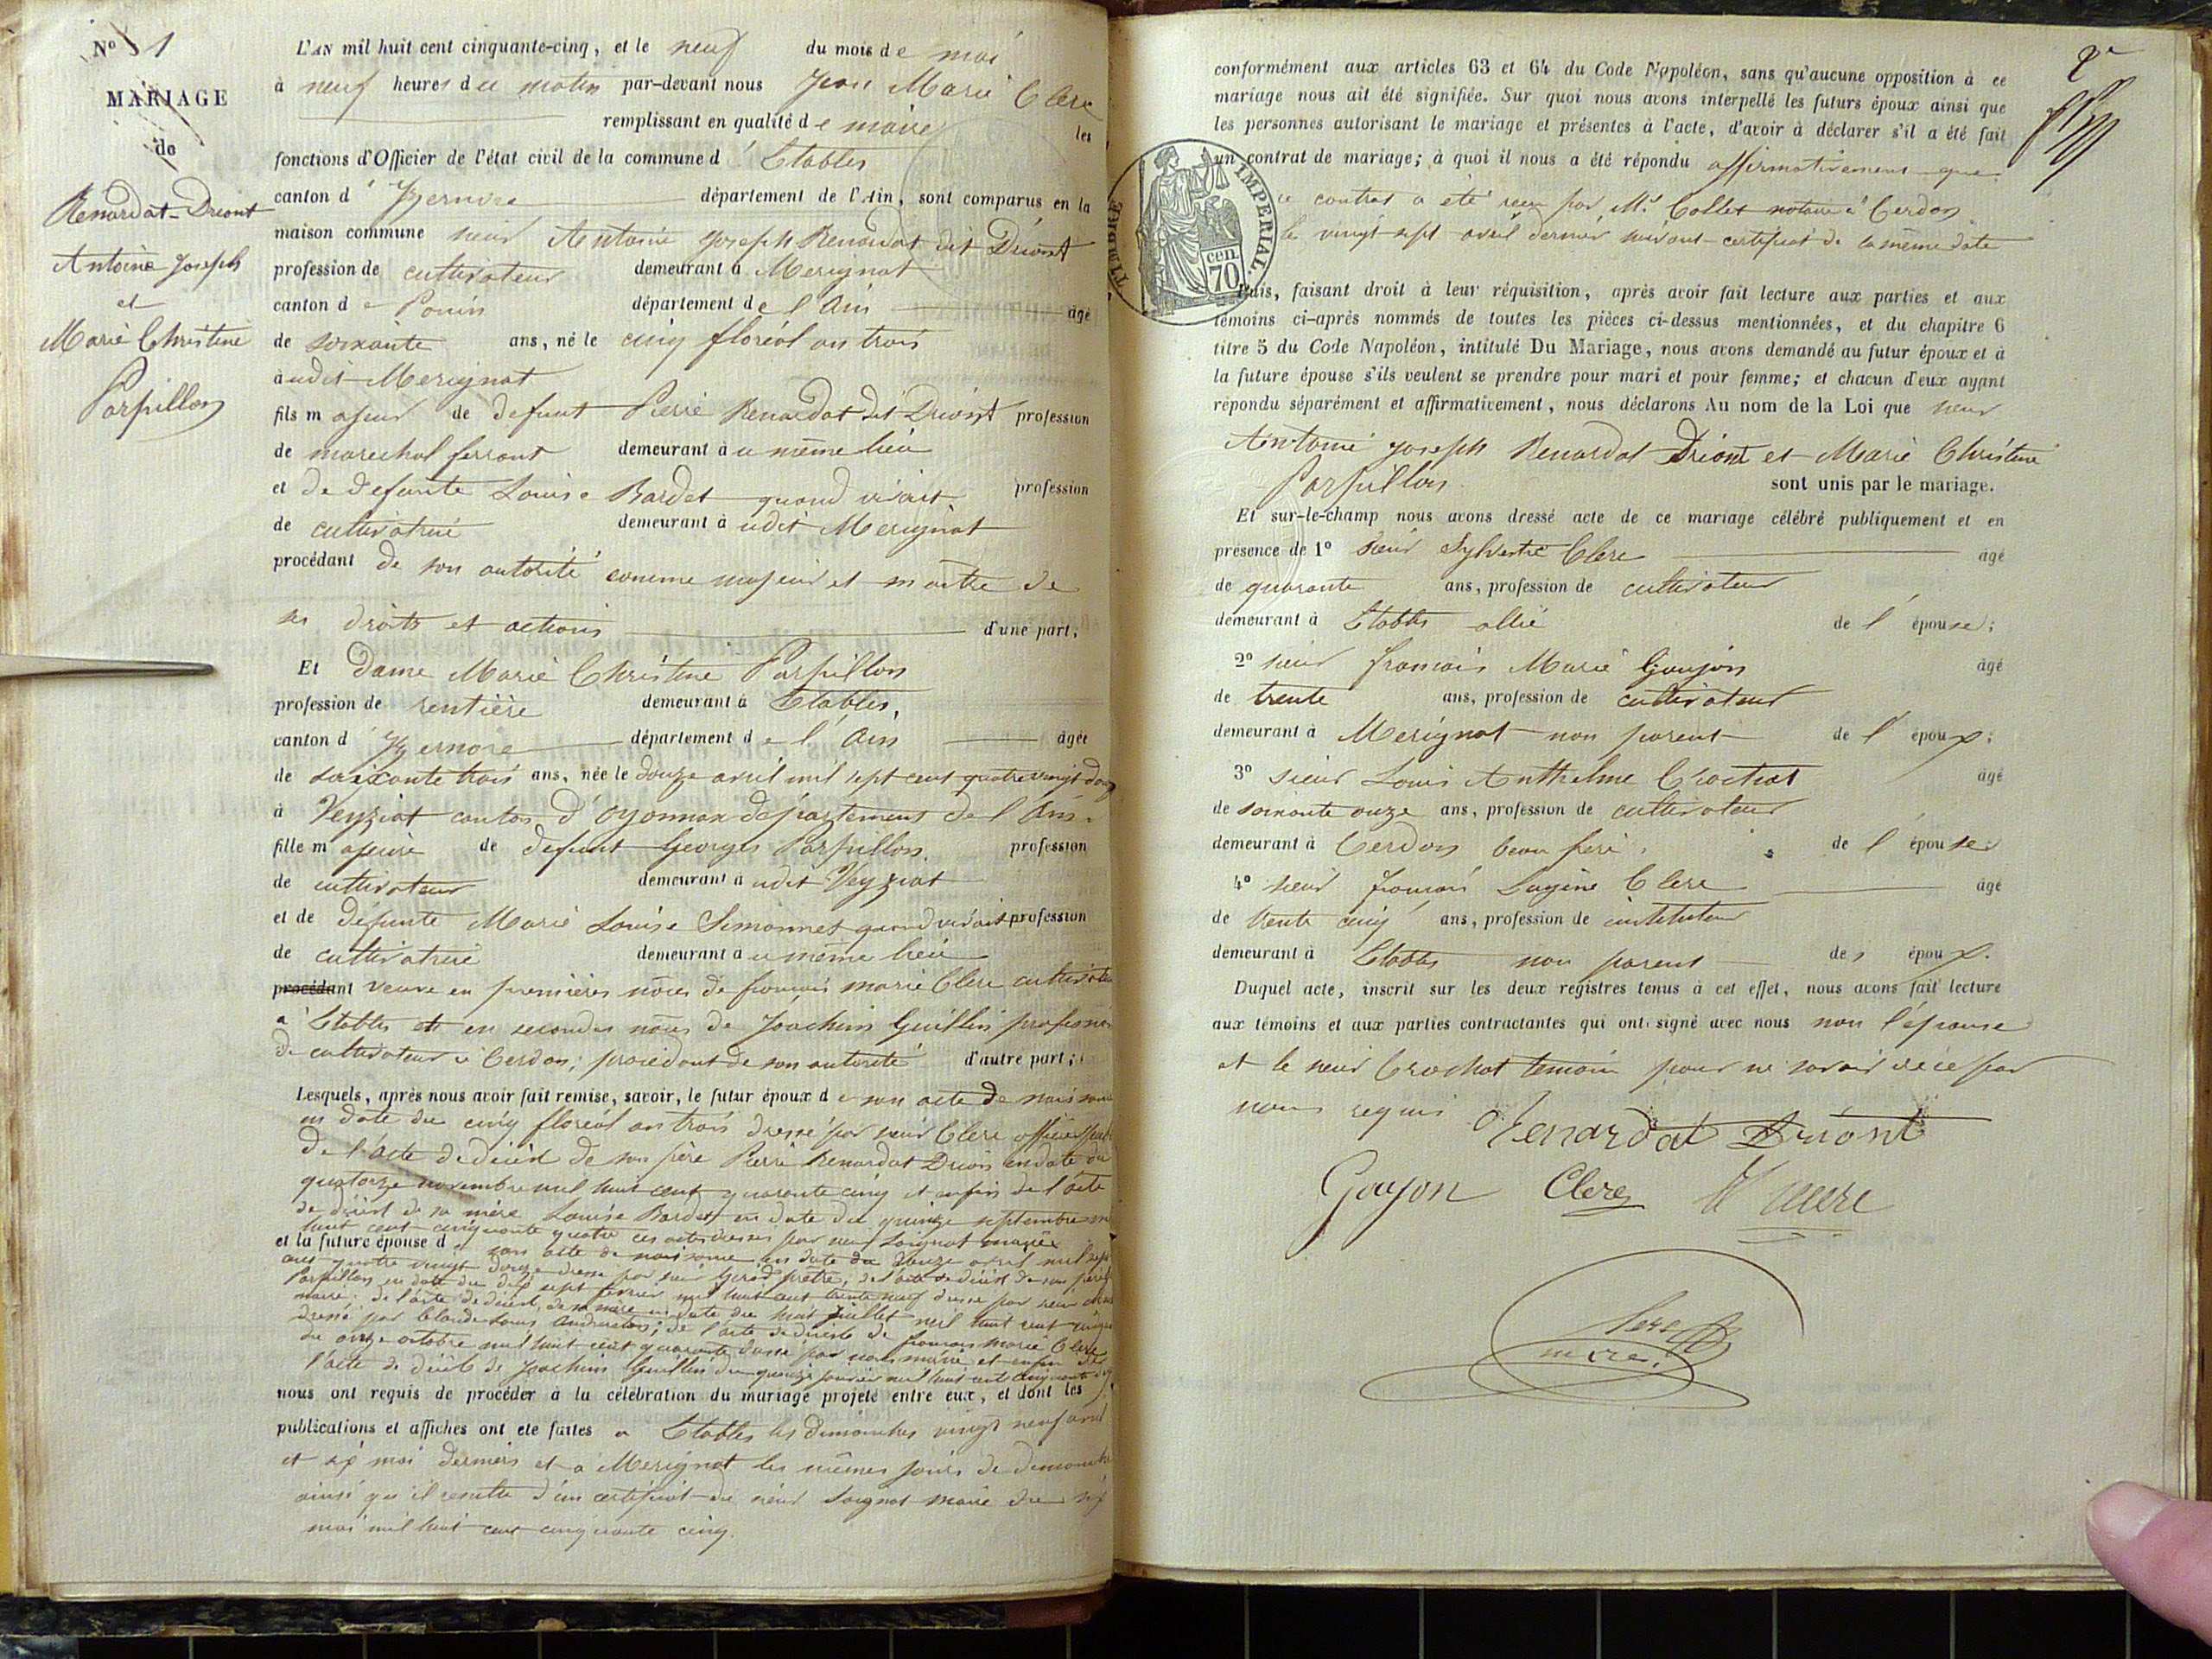 N° 1
MARIAGE
de
Renardat-Driont
Antoine Joseph
et
Marie Christine
Parpillon
L'AN mil huit cent cinquante-cinq, et le neuf du mois de mai
à neuf heures du matin par-devant nous Jean Marie Clerc
remplissant en qualité de maire les
fonctions d'Officier de l'état civil de la commune d'Etables
canton d'Izernore département de l'Ain, sont comparus en la
maison commune sieur Antoine Joseph Renardat dit Driont
profession de cultivateur demeurant à Merignat
canton de Poncin département de l'Ain âgé
de soixante ans, né le cinq floréal an trois
à udit Merignat
fils majeur de defunt Pierre Renardat dit Driont profession
de marechal ferrant demeurant à u même lieu
et de defunte Louise Bardet quand vivait profession
de cultivatrice demeurant à udit Merignat
procédant de son autorité comme majeur et maitre de
ses droits et actions d'une part,
Et Dame Marie Christine Parpillon
profession de rentière demeurant à Etables,
canton d'Izernore département de l'Ain âgée
de soixante trois ans, née le douze avril mil sept cent quatre vingt douze
à Veyziat canton d'Oyonnax département de l'Ain.
fille majeure de defunt Georges Parpillon profession
de cultivateur demeurant à udit Veyziat
et de défunte Marie Louise Simonnet quand vivait profession
de cultivatrice demeurant à u même lieu
procédant veuve en premières noces de françois marie Clerc cultivateur
a Etables et en secondes noces de Joachim Guillin profession
de cultivateur à Cerdon; procédant de son autorité d'autre part;
Lesquels, après nous avoir fait remise, savoir, le futur époux de son acte de naissance
en date du cinq floréal an trois dressé par sieur Clerc officier
De l'acte de décès de son père Pierre Renardat Driont en date du
quatorze novembre mil huit cent quarante cinq et enfin de l'acte
de décès de sa mère Louise Bardet en date du quinze septembre mil
huit cent cinquante quatre ces actes dressés par sieur Soignat maire
et la future épouse de son acte de naissance en date du douze avril mil sept
cent quatre vingt douze dressé par sieur prêtre, de l'acte de décès de son père
Parpillon en date du dix sept février mil huit cent trente neuf dressé par sieur
maire; de l'acte de décès de sa mère en date du huit juillet mil huit cent
dressé par Claude Louis; de l'acte de décès de françois marie Clerc
du onze octobre mil huit cent quarante dressé par nous maire et enfin de
l'acte de décès de Joachim Guillin du quinze janvier mil huit cent cinquante
nous ont requis de procéder à la célébration du mariage projeté entre eux, et dont les
publications et affiches ont été faites a Etables les dimanches vingt neuf avril
et six mai derniers et a Merignat les mêmes jours de dimanche
ainsi qu'il resulte d'un certificat du sieur Soignat maire du six
mai mil huit cent cinquante cinq.
2e
conformément aux articles 63 et 64 du Code Napoléon, sans qu'aucune opposition à ce
mariage nous ait été signifiée. Sur quoi nous avons interpellé les futurs époux ainsi que
les personnes autorisant le mariage et présentes à l'acte, d'avoir à déclarer s'il a été fait
un contrat de mariage; à quoi il nous a été répondu affirmativement que
ce contrat a été reçu par Me Collet notaire à Cerdon
le vingt sept avril dernier suivant certificat de la même date
TIMBRE IMPERIAL.
cen. 70
Puis, faisant droit à leur réquisition, après avoir fait lecture aux parties et aux
témoins ci-après nommés de toutes les pièces ci-dessus mentionnées, et du chapitre 6
titre 5 du Code Napoléon, intitulé Du Mariage, nous avons demandé au futur époux et à
la future épouse s'ils veulent se prendre pour mari et pour femme; et chacun d'eux ayant
répondu séparément et affirmativement, nous déclarons Au nom de la Loi que sieur
Antoine Joseph Renardat Driont et Marie Christine
Parpillon sont unis par le mariage.
Et sur-le-champ nous avons dressé acte de ce mariage célébré publiquement et en
présence de 1° sieur Sylvestre Clerc âgé
de quarante ans, profession de cultivateur
demeurant à Etables allié de l'épouse;
2° sieur françois Marie Goujon âgé
de trente ans, profession de cultivateur
demeurant à Merignat non parent de l'époux;
3° sieur Louis Anthelme Crochat âgé
de soixante onze ans, profession de cultivateur
demeurant à Cerdon beau frère de l'épouse
4° sieur françois Eugène Clerc âgé
de trente cinq ans, profession de instituteur
demeurant à Etables non parent des époux.
Duquel acte, inscrit sur les deux registres tenus à cet effet, nous avons fait lecture
aux témoins et aux parties contractantes qui ont signé avec nous non l'épouse
et le sieur Crochat temoin pour ne savoir de ce par
nous requis Renardat Driont
Goujon Clerc Clerc
Clerc
maire.